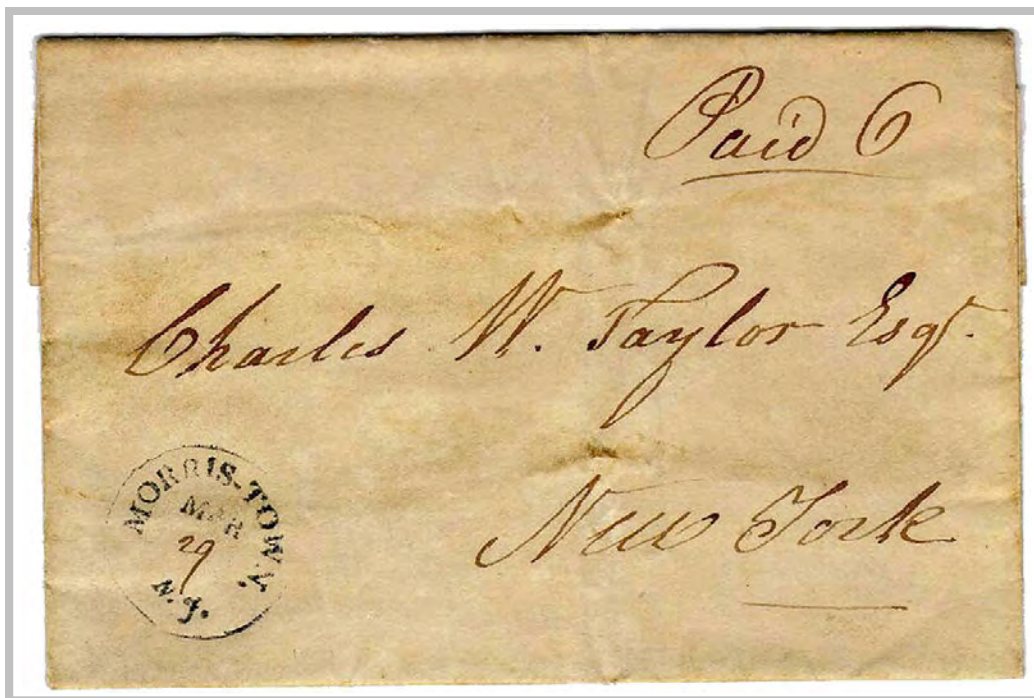 Paid 6
Charles W. Taylor Esqr.
New York
MORRIS-TOWN.
MAR
29
N.J.